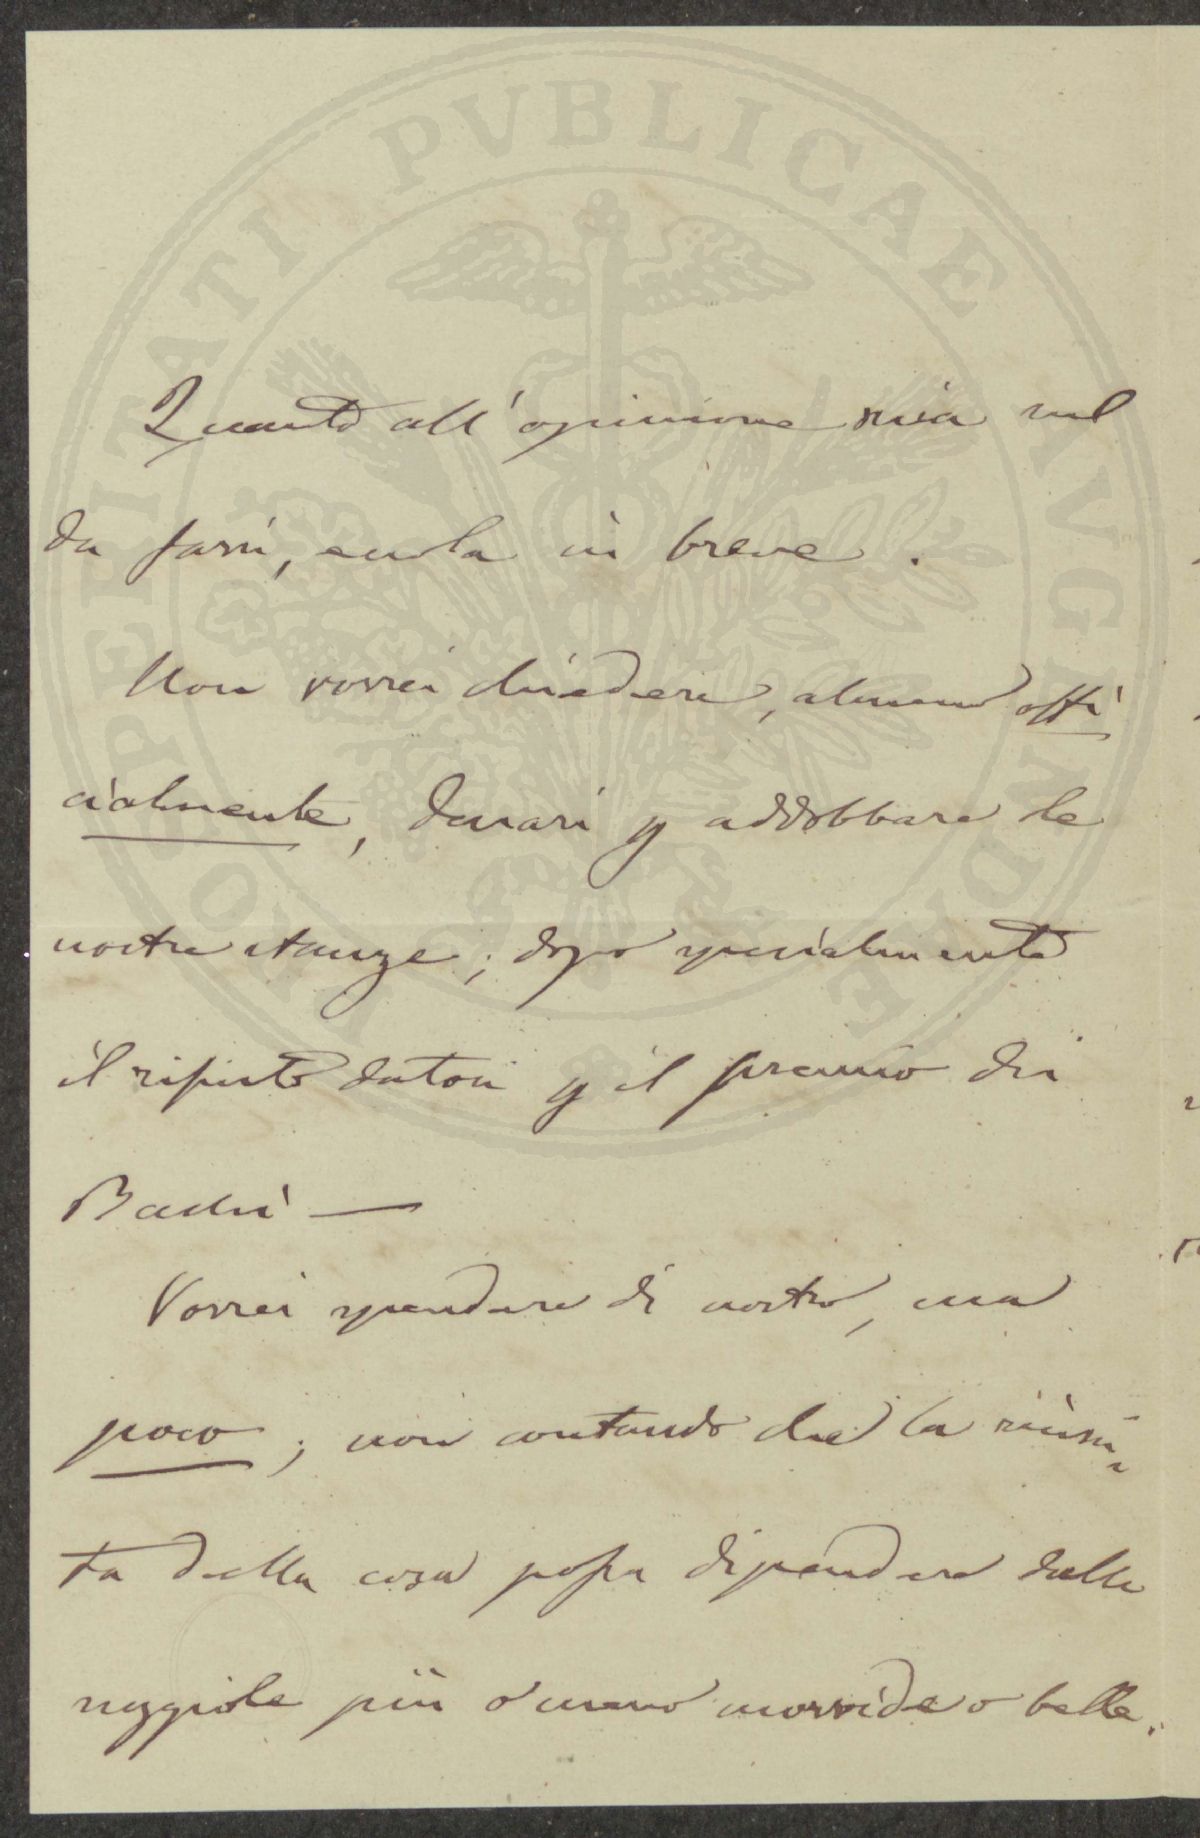 PROSPERITATI PUBLICAE AUGENDAE
Quanto all'opinione mia sul
da farsi, eccola in breve.
Non vorrei chiedere, almeno offi
cialmente, danari p addobbare le
nostre stanze; dopo specialmente
il rifiuto datoci p il premio dei
Bachi —
Vorrei spendere di nostro, ma
poco; non contando che la riusci„
ta della cosa possa dipendere dalle
seggiole più o meno morvide o belle.